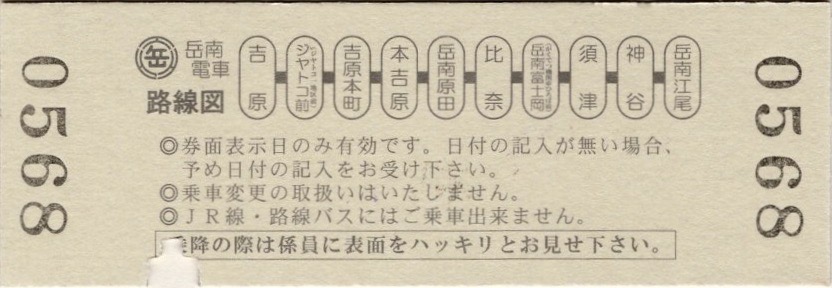 0568
岳 岳南電車
路線図
吉原
ジヤトコ前
吉原本町
本吉原
岳南原田
比奈
岳南富士岡
須津
神谷
岳南江尾
◎券面表示日のみ有効です。日付の記入が無い場合、
予め日付の記入をお受け下さい。
◎乗車変更の取扱いはいたしません。
◎JR線・路線バスにはご乗車出来ません。
乗降の際は係員に表面をハッキリとお見せ下さい。
0568